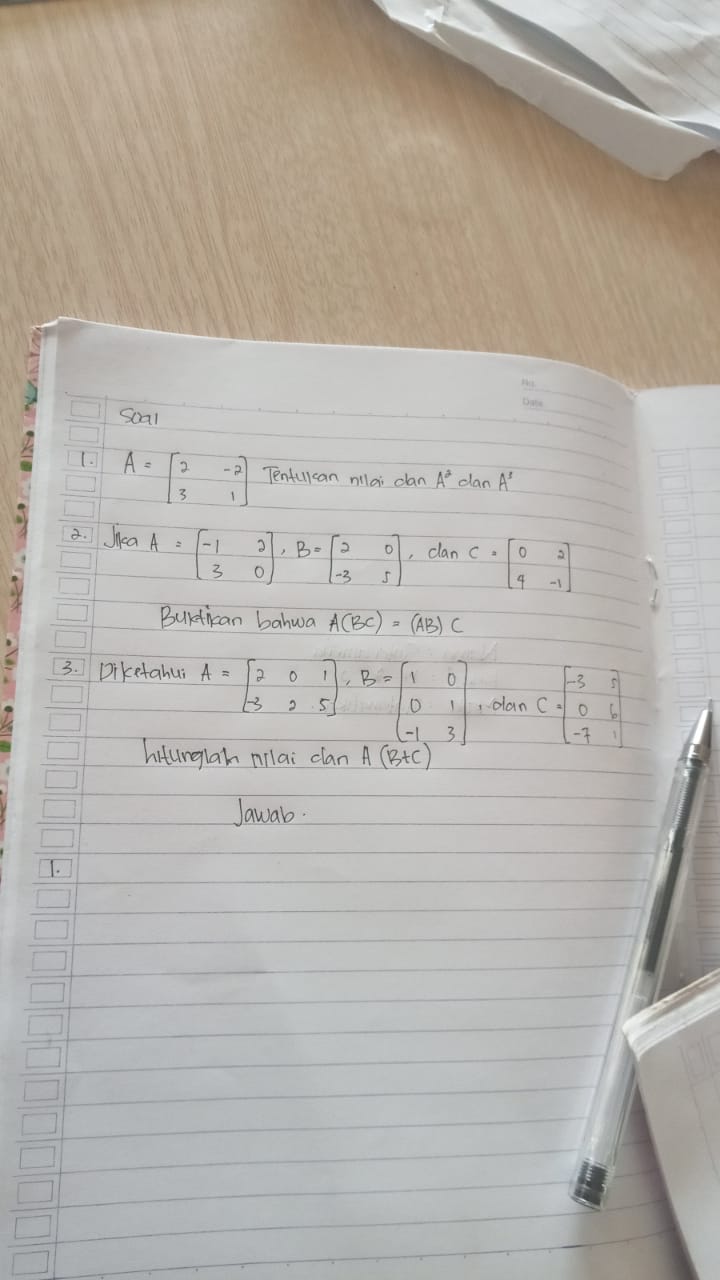 No.
Date
Soal
1. A = [2 -2] Tentukan nilai dan A² dan A³
[3 1]
2. Jika A = [-1 2], B = [2 0], dan C = [0 2]
[3 0] [-3 5] [4 -1]
Buktikan bahwa A(BC) = (AB) C
3. Diketahui A = [2 0 1], B = [1 0], dan C = [-3 5]
[-3 2 5] [0 1] [0 6]
[-1 3] [-7 1]
hitunglah nilai dan A (B+C)
Jawab.
1.